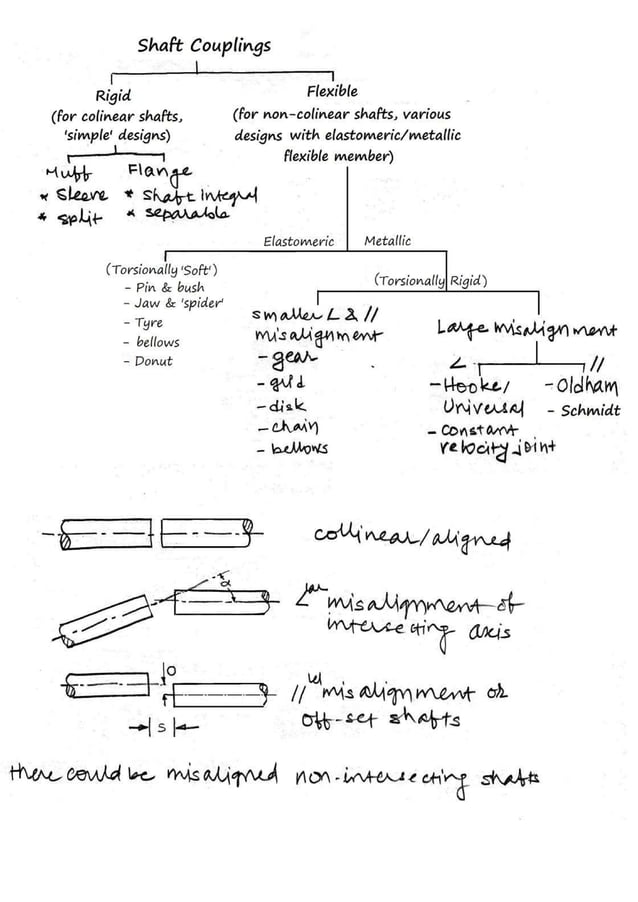 Shaft Couplings
Rigid
(for colinear shafts,
'simple' designs)
Flexible
(for non-colinear shafts, various
designs with elastomeric/metallic
flexible member)
Muff Flange
* Sleeve * Shaft integral
* split * separable
Elastomeric Metallic
(Torsionally 'Soft')
- Pin & bush
- Jaw & 'spider'
- Tyre
- bellows
- Donut
(Torsionally Rigid)
smaller ∠ & //
misalignment
- gear
- grid
- disk
- chain
- bellows
Large misalignment
∠ //
- Hooke/
Universal
- constant
velocity joint
- Oldham
- Schmidt
collinear/aligned
α
∠lar misalignment of
intersecting axis
O
S
//lel misalignment or
off-set shafts
there could be misaligned non-intersecting shafts